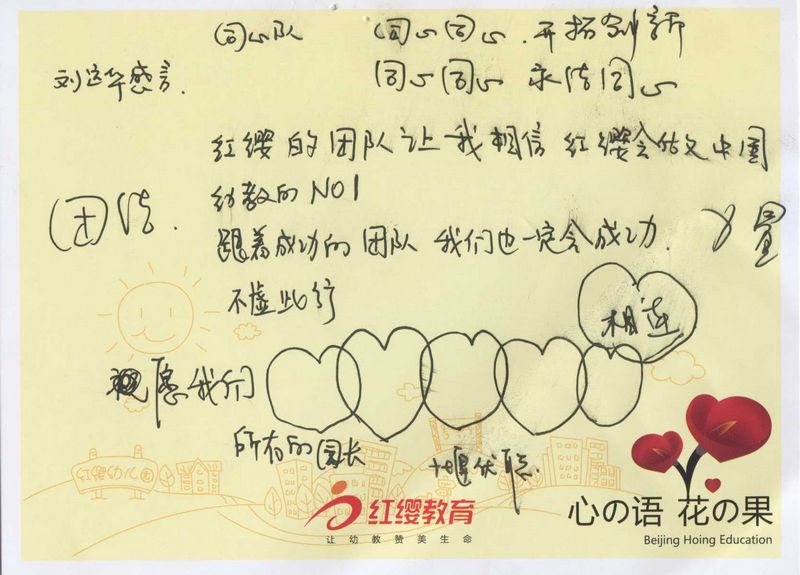 同心队 同心同心 开拓创新
感言. 同心同心 永结同心
红缨的团队让我相信红缨会中国
幼教的NO1
团结. 力量
跟着成功的团队 我们也一定会成功.
不虚此行
相连
愿我们
所有的园长
红缨幼儿园
红缨教育
让幼教赞美生命
心の语 花の果
Beijing Hoing Education